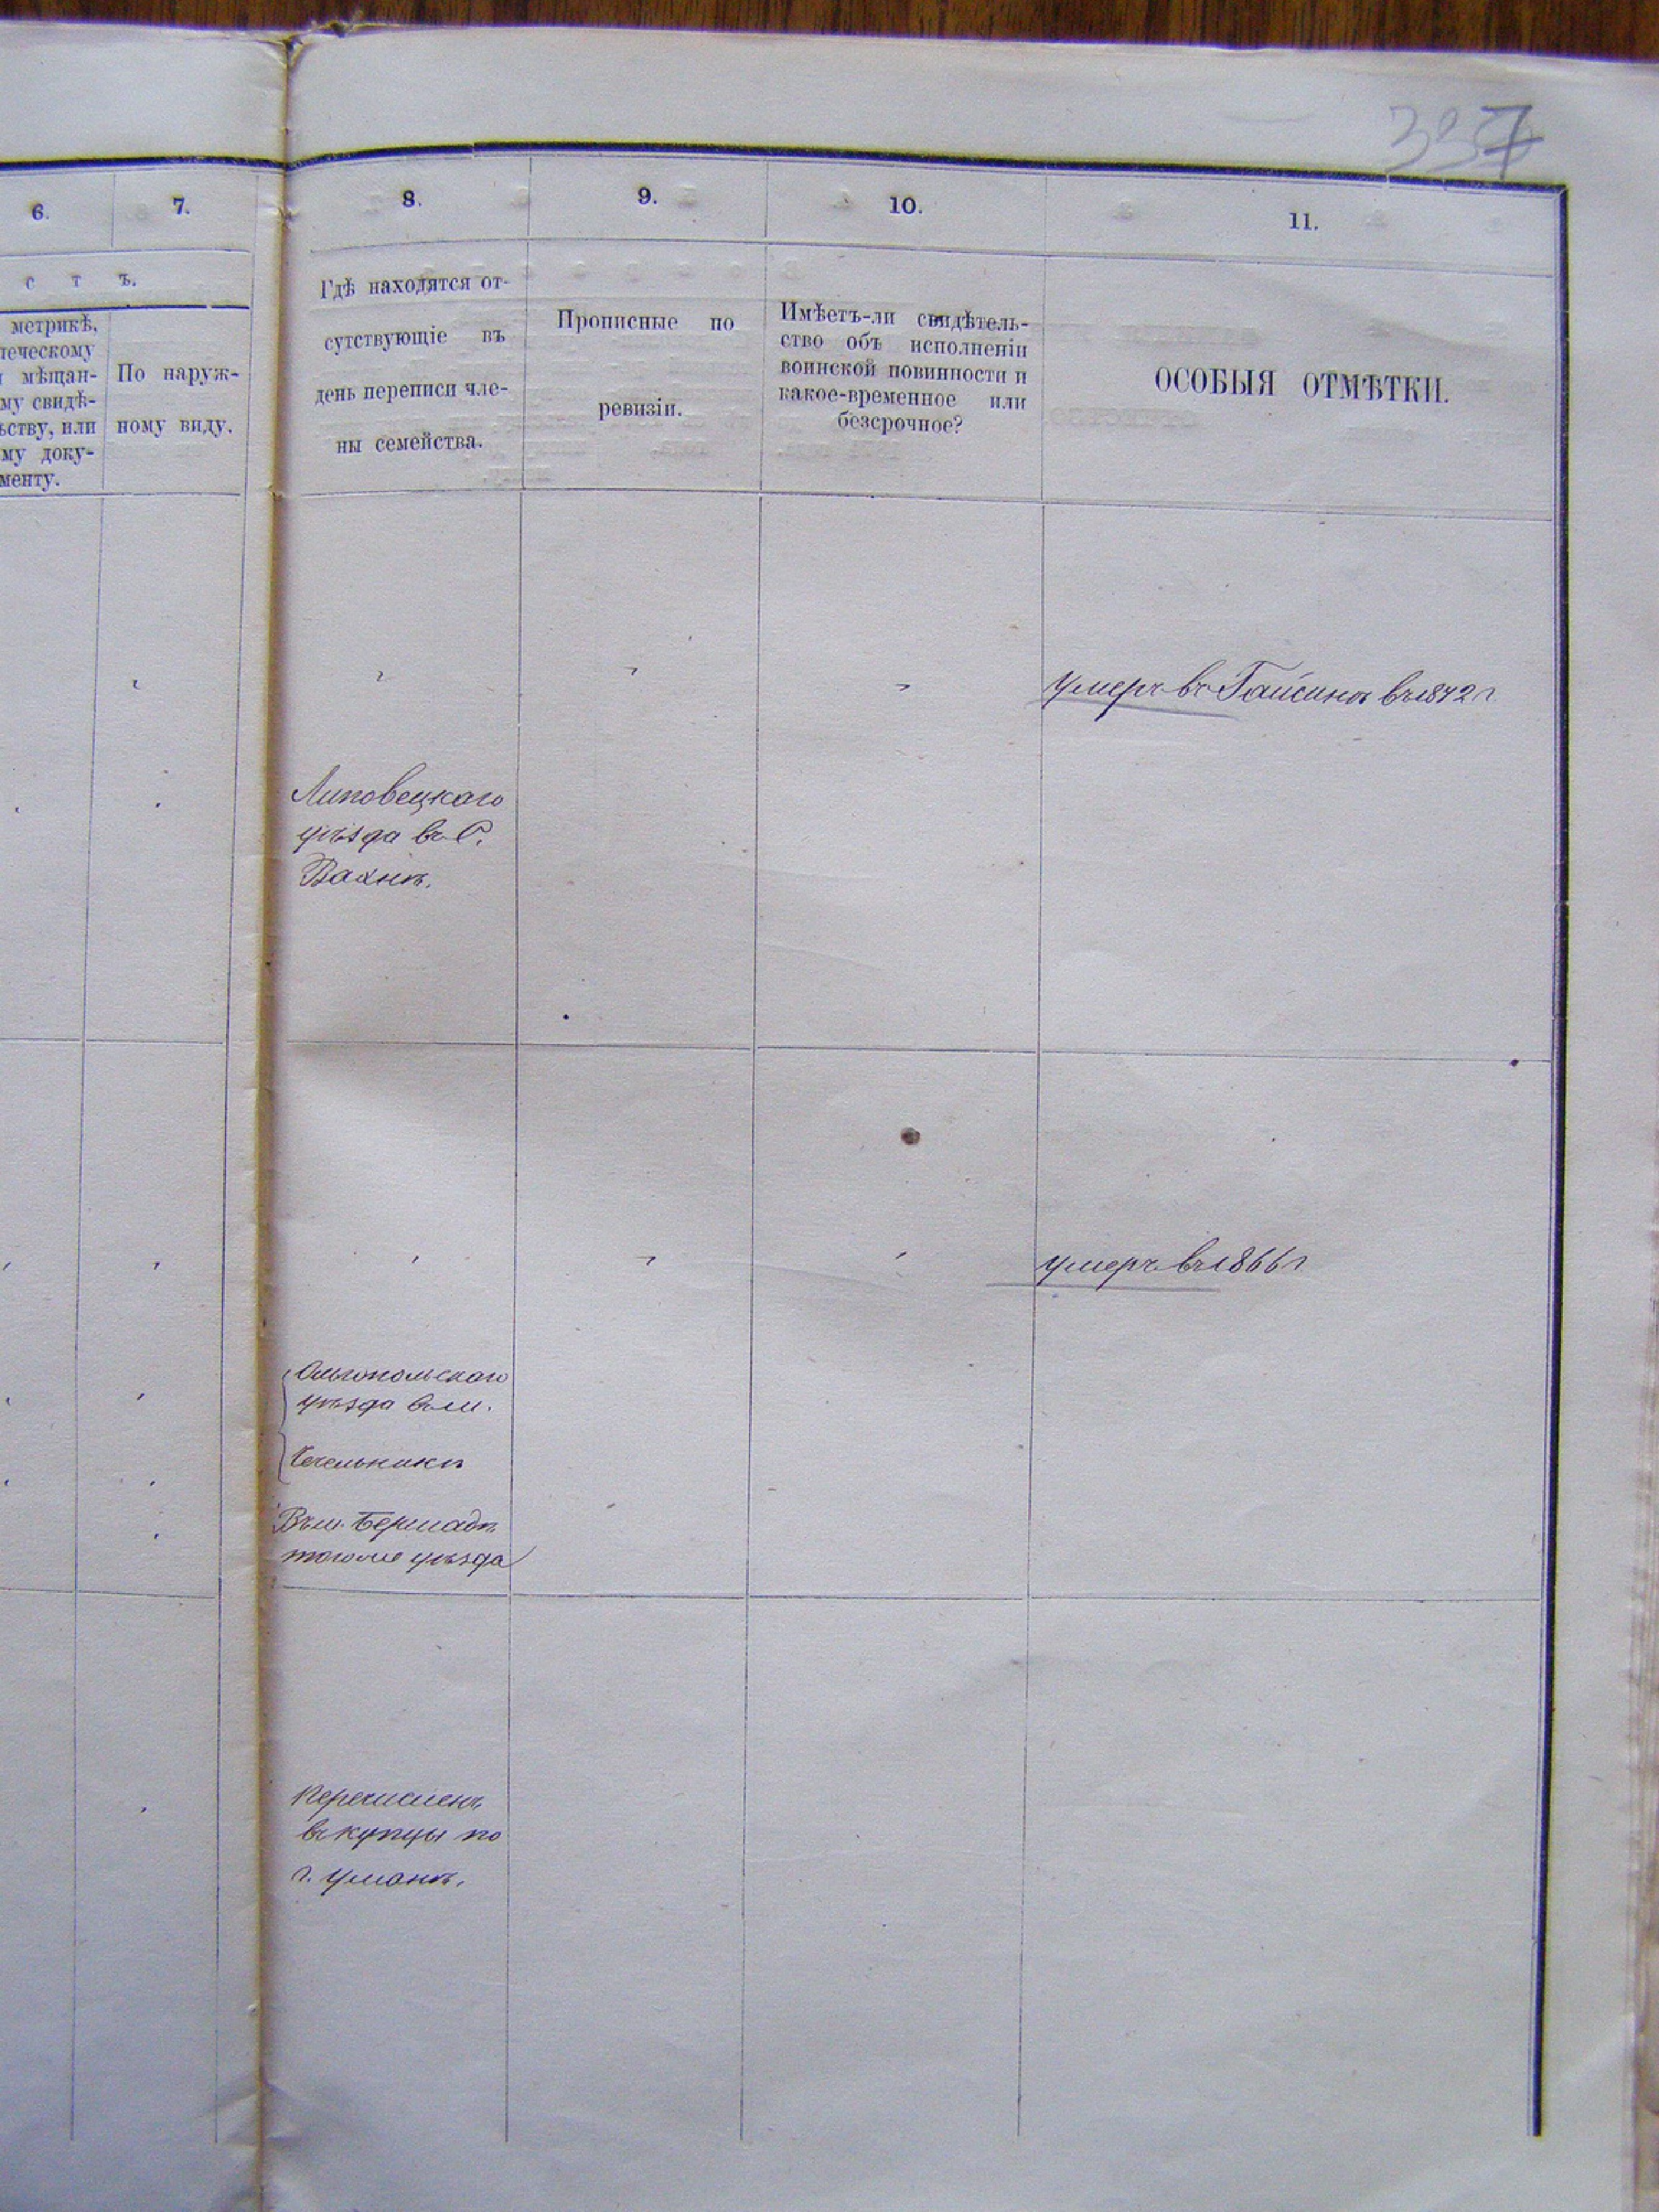 6.
7.
8.
9.
10.
11.
с т ъ.
метрикѣ,
мѣщан-
му свидѣ-
ьству, или
му доку-
менту.
По наруж-
ному виду.
Гдѣ находятся от-
сутствующіе въ
день переписи чле-
ны семейства.
Прописные по
ревизіи.
Имѣетъ-ли свидѣтель-
ство объ исполненіи
воинской повинности и
какое-временное или
безсрочное?
ОСОБЫЯ ОТМѢТКИ.
умеръ въ Гайсинѣ въ 1872 г
Липовецкаго
уѣзда въ С.
Вахнѣ.
умеръ въ 1866 г
Ольгопольскаго
уѣзда въ м.
Чечельникѣ
Въ м. Бершадѣ
того же уѣзда
Перечисленъ
въ купцы по
г. Уманѣ.